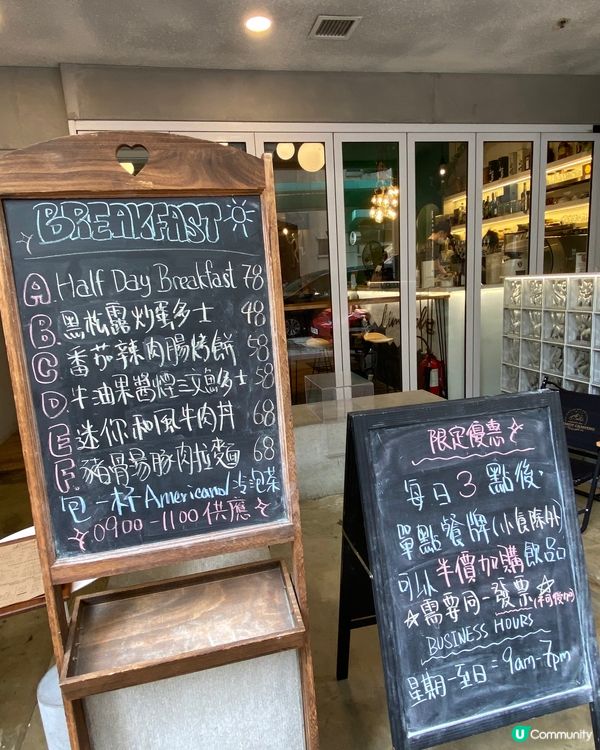 BREAKFAST
A. Half Day Breakfast 78
B. 黑松露炒蛋多士 48
C. 番茄辣肉腸烤餅 58
D. 牛油果醬煙三文魚多士 58
E. 迷你和風牛肉丼 68
F. 豬骨湯豚肉拉麵 68
包一杯 Americano/冷泡茶
0900-1100 供應
限定優惠
每日3點後,
單點餐牌(小食除外)
可以半價加購飲品
需要同一發票(不可後加)
BUSINESS HOURS
星期一至日=9am-7pm
U Community